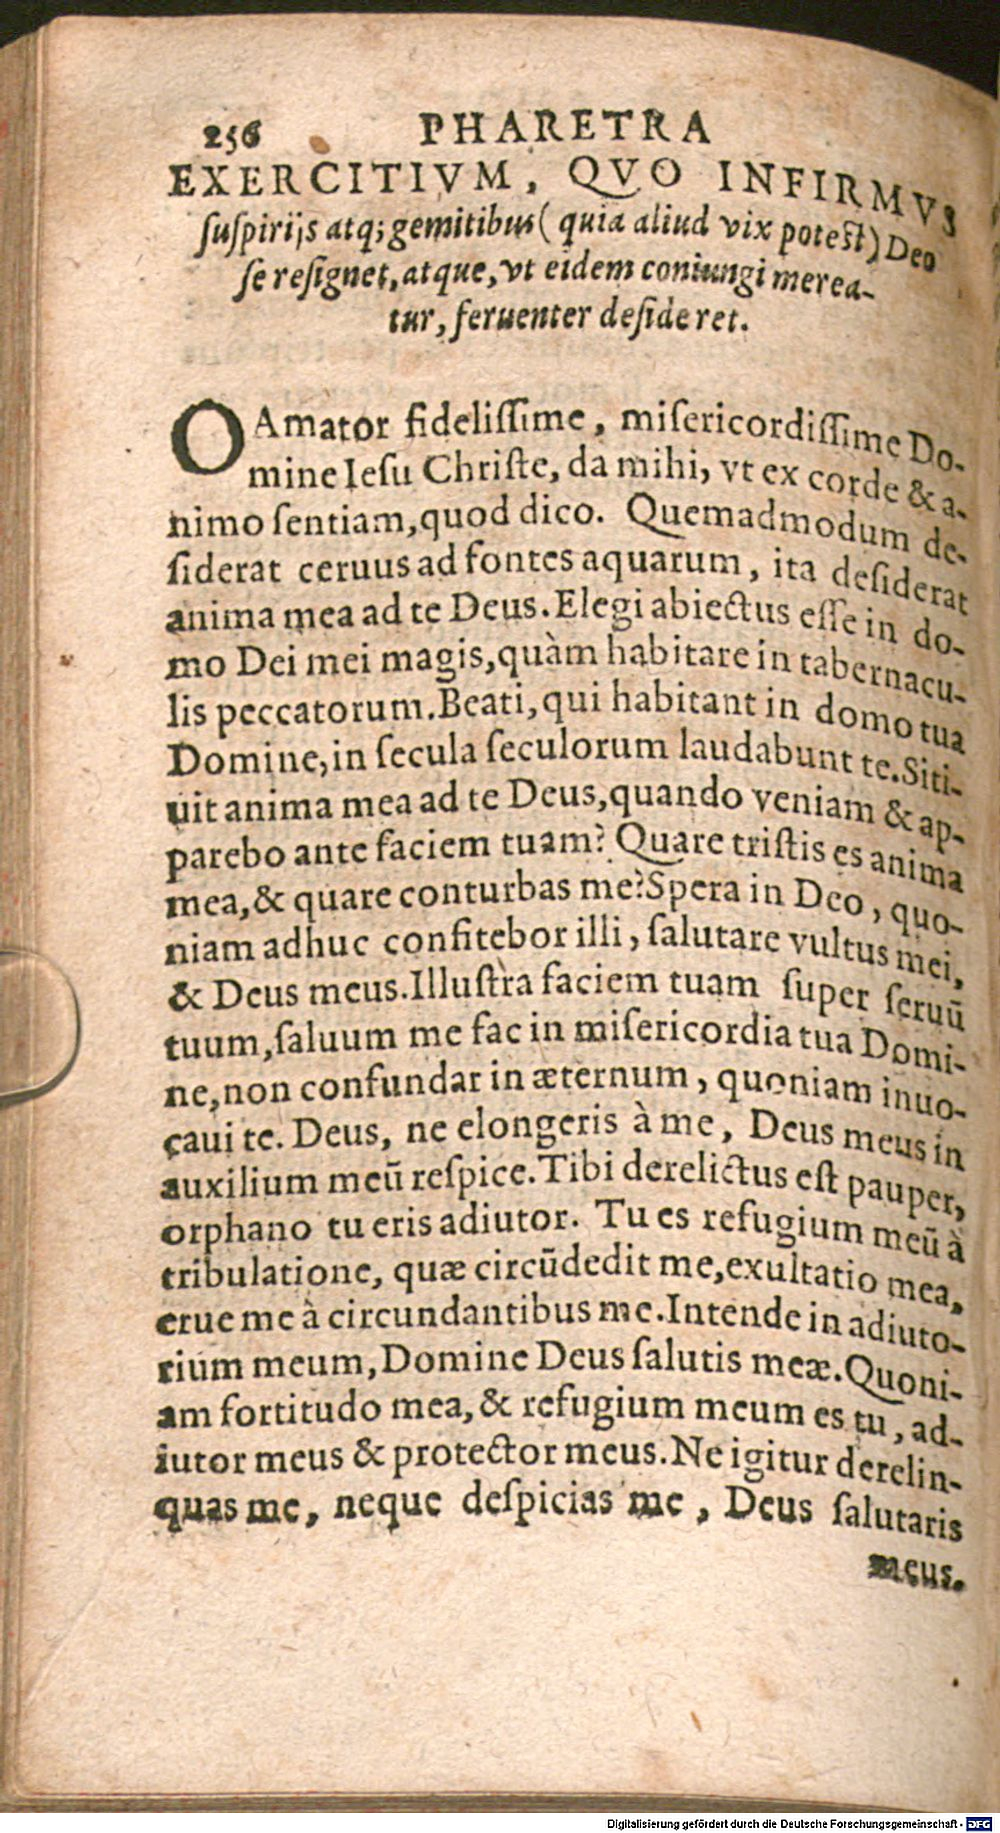 256 PHARETRA
EXERCITIVM, QVO INFIRMVS
ſuſpirijs atq; gemitibus (quia aliud vix poteſt) Deo
ſe reſignet, atque, vt eidem coniungi merea-
tur, feruenter deſideret.
O Amator fideliſſime, miſericordiſſime Do-
mine Ieſu Chriſte, da mihi, vt ex corde & a-
nimo ſentiam, quod dico. Quemadmodum de-
ſiderat ceruus ad fontes aquarum, ita deſiderat
anima mea ad te Deus. Elegi abiectus eſſe in do-
mo Dei mei magis, quàm habitare in tabernacu-
lis peccatorum. Beati, qui habitant in domo tua
Domine, in ſecula ſeculorum laudabunt te. Siti-
uit anima mea ad te Deus, quando veniam & ap-
parebo ante faciem tuam? Quare triſtis es anima
mea, & quare conturbas me? Spera in Deo, quo-
niam adhuc confitebor illi, ſalutare vultus mei,
& Deus meus. Illuſtra faciem tuam ſuper ſeruū
tuum, ſaluum me fac in miſericordia tua Domi-
ne, non confundar in æternum, quoniam inuo-
caui te. Deus, ne elongeris à me, Deus meus in
auxilium meū reſpice. Tibi derelictus eſt pauper,
orphano tu eris adiutor. Tu es refugium meū à
tribulatione, quæ circūdedit me, exultatio mea,
erue me à circundantibus me. Intende in adiuto-
rium meum, Domine Deus ſalutis meæ. Quoni-
am fortitudo mea, & refugium meum es tu, ad-
iutor meus & protector meus. Ne igitur derelin-
quas me, neque deſpicias me, Deus ſalutaris
meus.
Digitalisierung gefördert durch die Deutsche Forschungsgemeinschaft - DFG